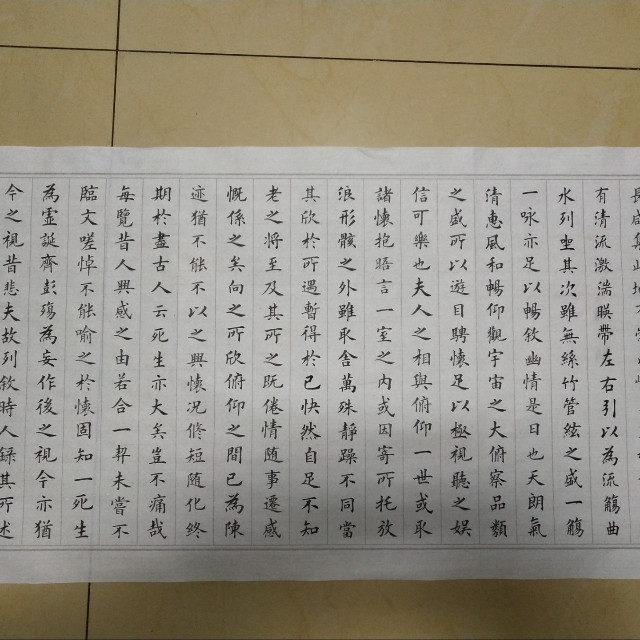 長咸集此地有
有清流激湍暎帶左右引以為流觴曲
水列坐其次雖無絲竹管絃之盛一觴
一咏亦足以暢敘幽情是日也天朗氣
清惠風和暢仰觀宇宙之大俯察品類
之盛所以遊目騁懷足以極視聽之娛
信可樂也夫人之相與俯仰一世或取
諸懷抱晤言一室之內或因寄所托放
浪形骸之外雖取舍萬殊靜躁不同當
其欣於所遇暫得於己快然自足不知
老之將至及其所之既倦情隨事遷感
慨係之矣向之所欣俯仰之間已為陳
迹猶不能不以之興懷況修短隨化終
期於盡古人云死生亦大矣豈不痛哉
每覽昔人興感之由若合一契未嘗不
臨文嗟悼不能喻之於懷固知一死生
為虛誕齊彭殤為妄作後之視今亦猶
今之視昔悲夫故列敘時人錄其所述